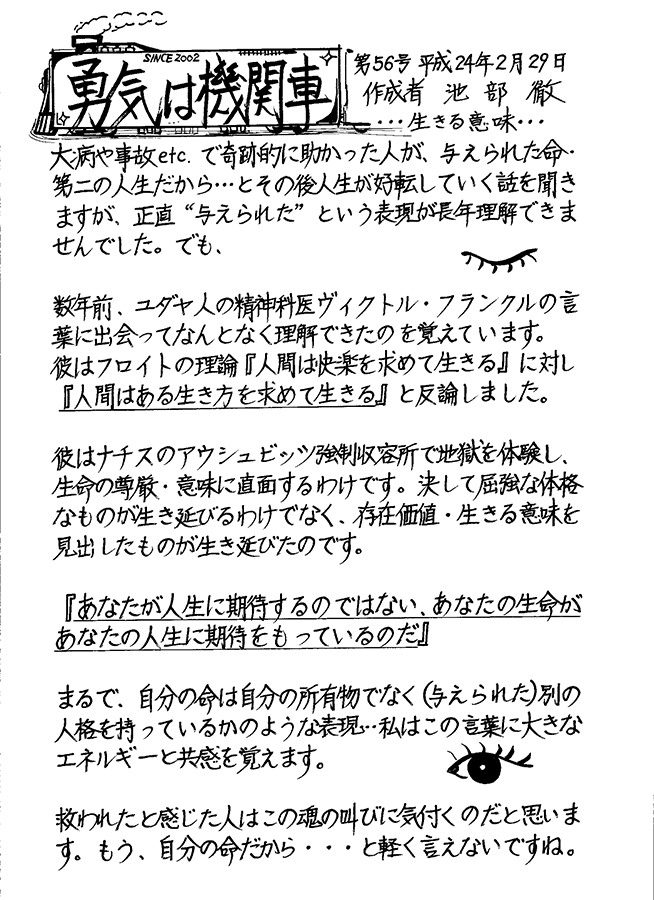 SINCE 2002
勇気は機関車
第56号 平成24年2月29日
作成者 池部 徹
・・・生きる意味・・・
大病や事故etc. で奇跡的に助かった人が、与えられた命・
第二の人生だから…とその後人生が好転していく話を聞き
ますが、正直“与えられた”という表現が長年理解できま
せんでした。でも、
数年前、ユダヤ人の精神科医ヴィクトル・フランクルの言
葉に出会ってなんとなく理解できたのを覚えています。
彼はフロイトの理論『人間は快楽を求めて生きる』に対し
『人間はある生き方を求めて生きる』と反論しました。
彼はナチスのアウシュビッツ強制収容所で地獄を体験し、
生命の尊厳・意味に直面するわけです。決して屈強な体格
なものが生き延びるわけでなく、存在価値・生きる意味を
見出したものが生き延びたのです。
『あなたが人生に期待するのではない、あなたの生命が
あなたの人生に期待をもっているのだ』
まるで、自分の命は自分の所有物でなく(与えられた)別の
人格を持っているかのような表現…私はこの言葉に大きな
エネルギーと共感を覚えます。
救われたと感じた人はこの魂の叫びに気付くのだと思いま
す。もう、自分の命だから・・・と軽く言えないですね。